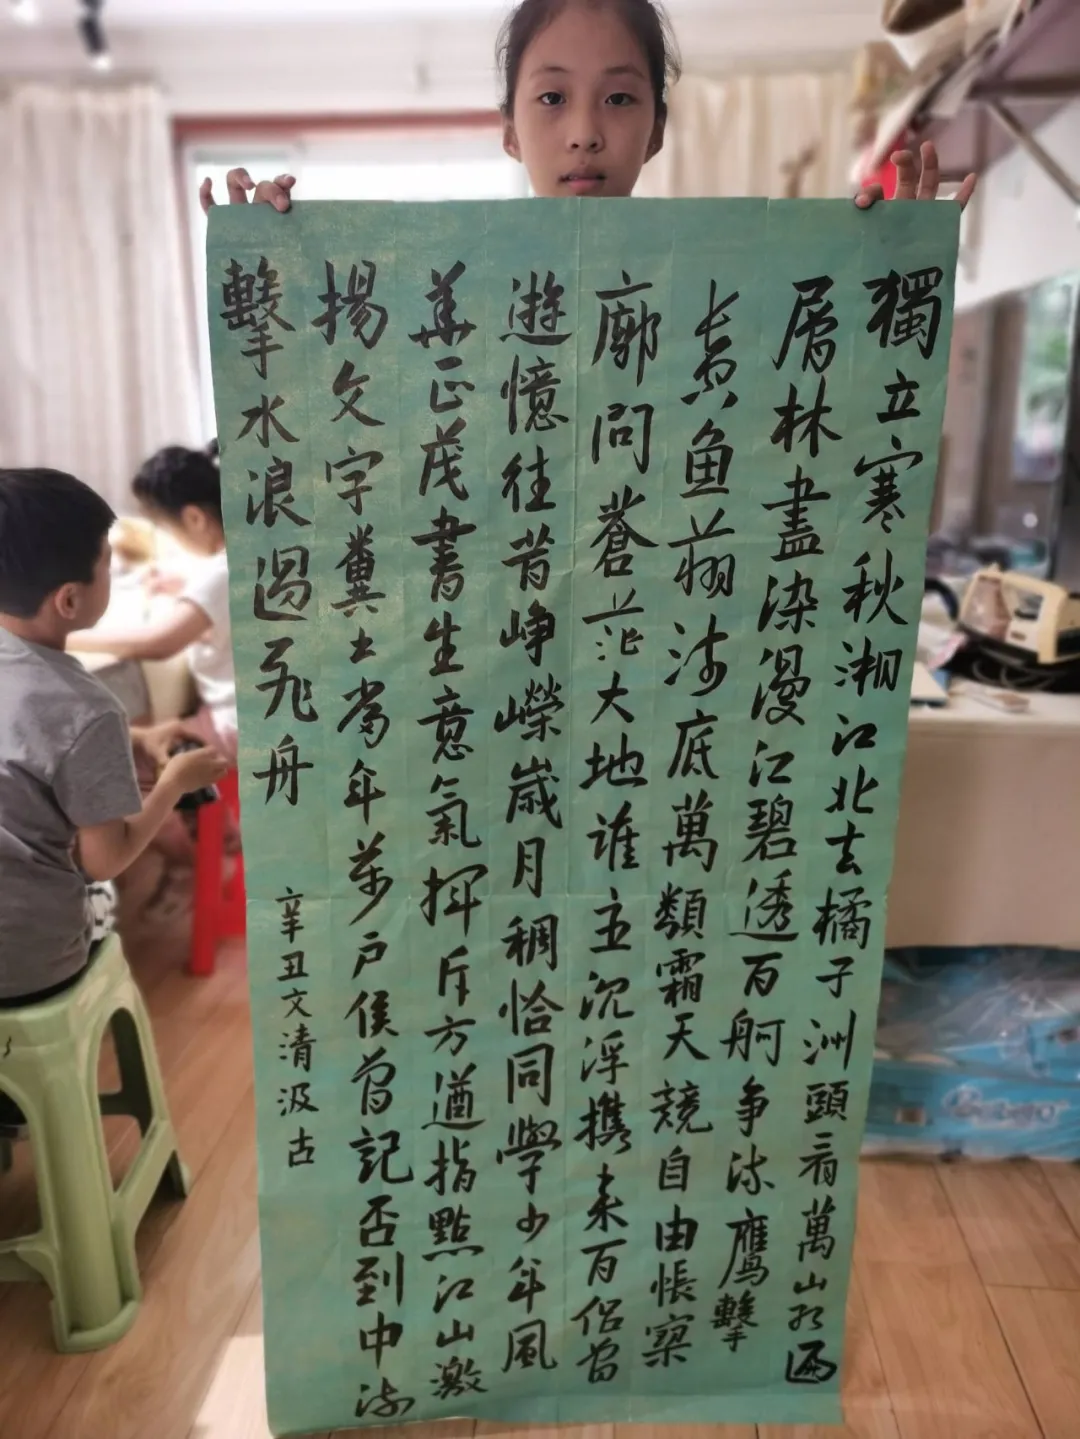 獨立寒秋湘江北去橘子洲頭看萬山紅遍
層林盡染漫江碧透百舸争流鷹擊
長空魚翔淺底萬類霜天競自由悵寥
廓問蒼茫大地誰主沉浮携來百侣曾
遊憶往昔崢嶸歲月稠恰同學少年風
華正茂書生意氣揮斥方遒指點江山激
揚文字糞土當年万户侯曾記否到中流
擊水浪遏飛舟
辛丑文清汲古